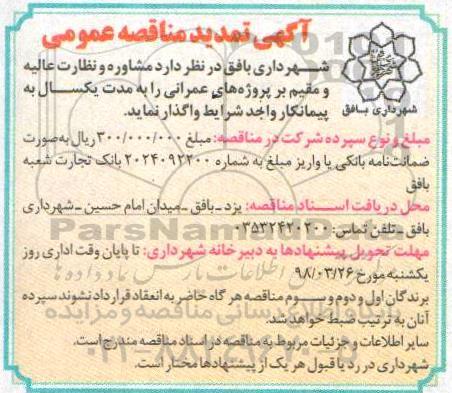 آگهی تمدید مناقصه عمومی
شهرداری بافق
شهرداری بافق در نظر دارد مشاوره و نظارت عالیه
و مقیم بر پروژه‌های عمرانی را به مدت یکسال به
پیمانکار واجد شرایط واگذار نماید.
مبلغ و نوع سپرده شرکت در مناقصه: مبلغ ۳۰۰/۰۰۰/۰۰۰ ریال به صورت
ضمانت‌نامه بانکی یا واریز مبلغ به شماره ۲۰۲۴۰۹۲۲۰۰ بانک تجارت شعبه
بافق
محل دریافت اسناد مناقصه: یزد ـ بافق ـ میدان امام حسین ـ شهرداری
بافق ـ تلفن تماس: ۰۳۵۳۲۴۲۰۲۰۰
مهلت تحویل پیشنهادها به دبیرخانه شهرداری: تا پایان وقت اداری روز
یکشنبه مورخ ۹۸/۰۳/۲۶
برندگان اول و دوم و سوم مناقصه هر گاه حاضر به انعقاد قرارداد نشوند سپرده
آنان به ترتیب ضبط خواهد شد.
سایر اطلاعات و جزئیات مربوط به مناقصه در اسناد مناقصه مندرج است.
شهرداری در رد یا قبول هر یک از پیشنهادها مختار است.